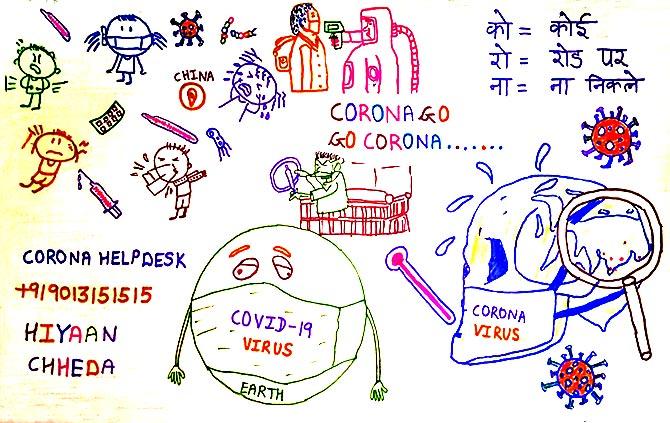 को = कोई
रो = रोड पर
ना = ना निकले
CHINA
CORONA GO
GO CORONA.......
CORONA HELPDESK
+919013151515
HIYAAN
CHHEDA
COVID-19
VIRUS
EARTH
CORONA
VIRUS